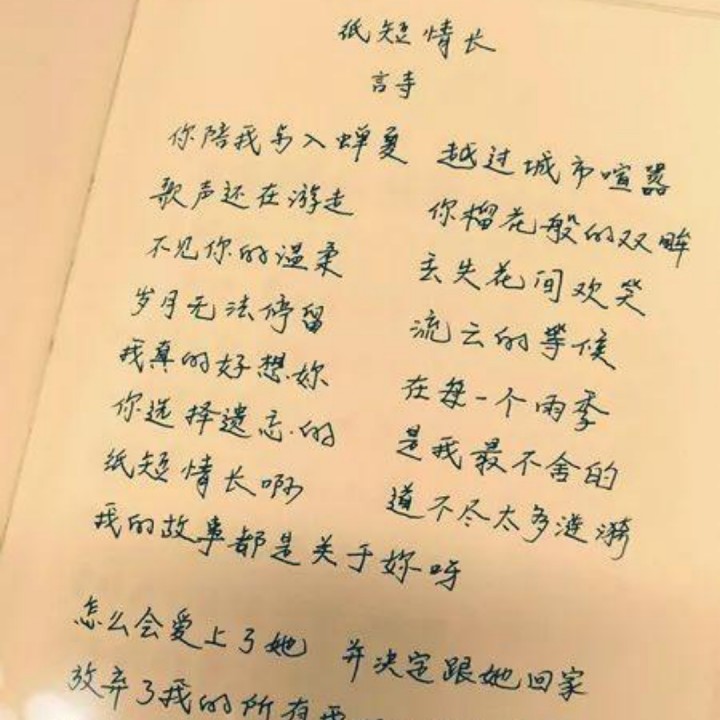 纸短情长
言寺
你陪我步入蝉夏 越过城市喧嚣
歌声还在游走 你榴花般的双眸
不见你的温柔 丢失花间欢笑
岁月无法停留 流云的等候
我真的好想妳 在每一个雨季
你选择遗忘的 是我最不舍的
纸短情长啊 道不尽太多涟漪
我的故事都是关于妳呀
怎么会爱上了她 并决定跟她回家
放弃了我的所有